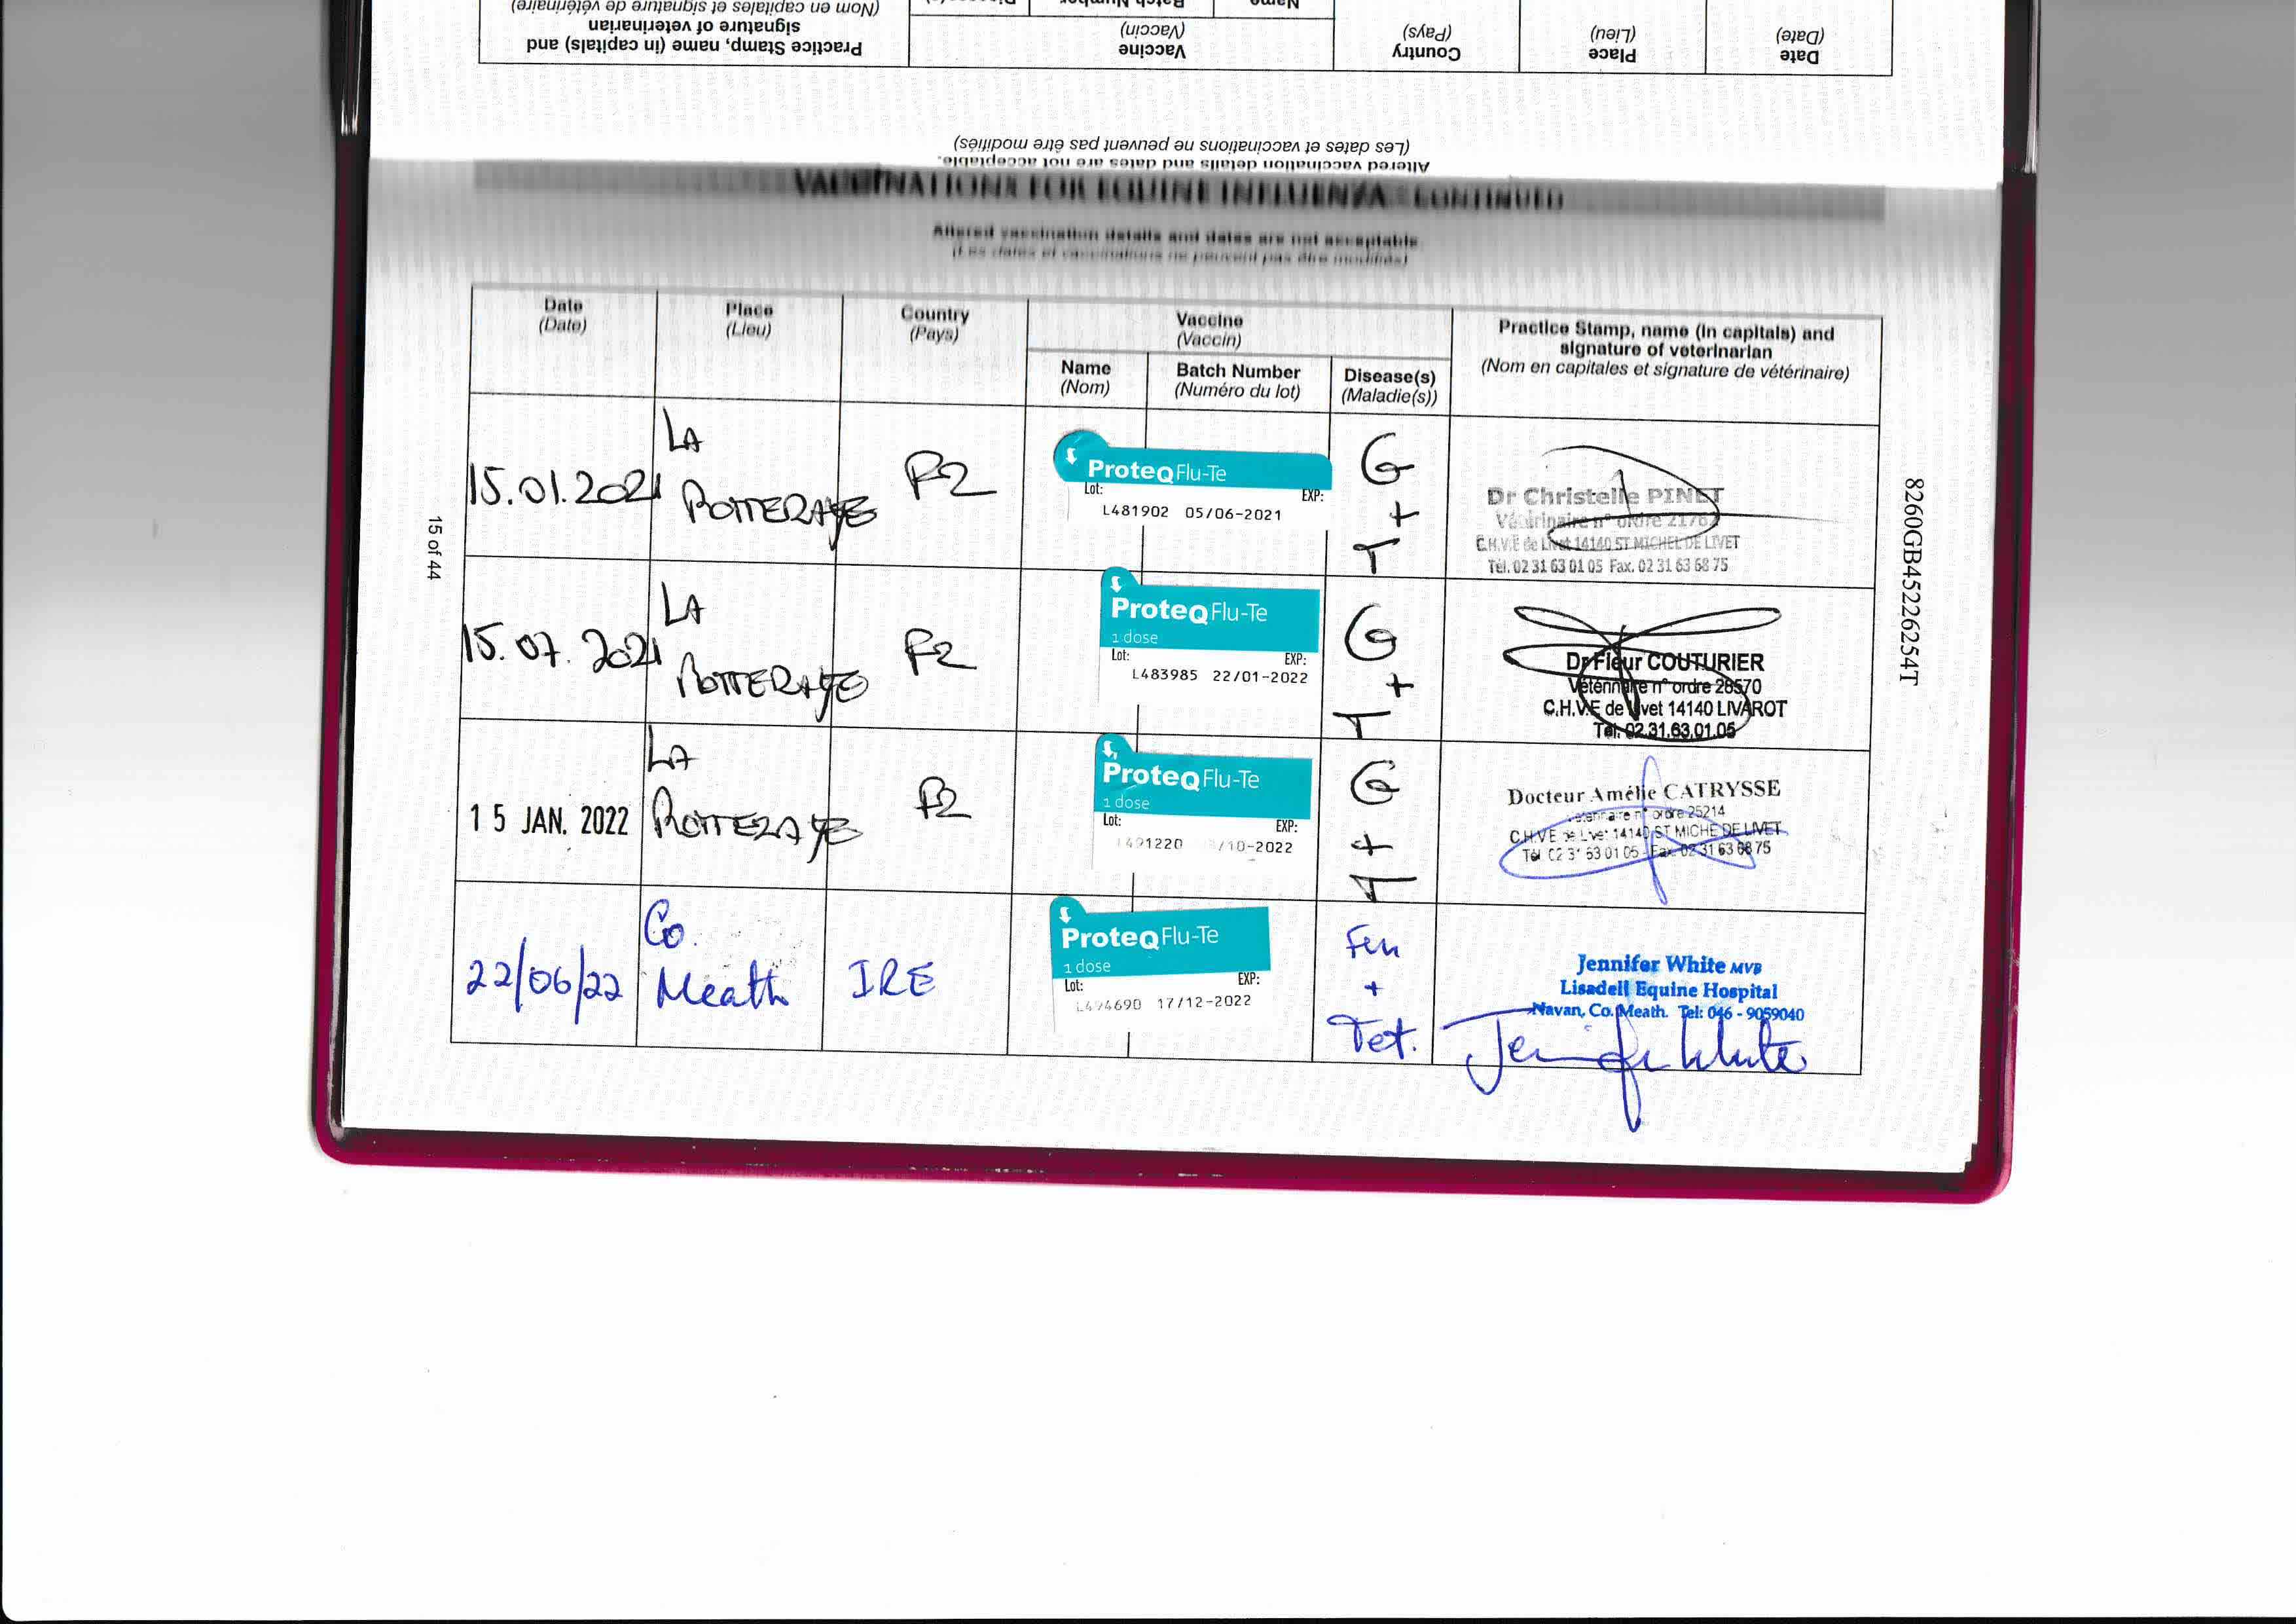 (Nom en capitales et signature de vétérinaire)
signature of veterinarian
Practice Stamp, name (in capitals) and
Batch Number
Name
(Vaccin)
Vaccine
(Pays)
Country
(Lieu)
Place
(Date)
Date
(Les dates et vaccinations ne peuvent pas être modifiées)
Altered vaccination details and dates are not acceptable.
VACCINATIONS FOR EQUINE INFLUENZA - CONTINUED
Altered vaccination details and dates are not acceptable
(Les dates et vaccinations ne peuvent pas être modifiées)
Date
(Date)
Place
(Lieu)
Country
(Pays)
Vaccine
(Vaccin)
Name
(Nom)
Batch Number
(Numéro du lot)
Disease(s)
(Maladie(s))
Practice Stamp, name (in capitals) and
signature of veterinarian
(Nom en capitales et signature de vétérinaire)
15.01.2021
LA
ProteqFlu-Te
Lot: EXP:
L481902 05/06-2021
G
+
T
Dr Christelle PINET
Vétérinaire n° ordre
C.H.V.E de Livet 14140 ST MICHEL DE LIVET
Tél. 02 31 63 01 05 Fax. 02 31 63 68 75
15.07.2021
LA
ProteqFlu-Te
1 dose
Lot: EXP:
L483985 22/01-2022
G
+
T
Dr Fleur COUTURIER
Vétérinaire n° ordre 28570
C.H.V.E de Livet 14140 LIVAROT
Tél: 02.31.63.01.05
15 JAN. 2022
LA
ProteqFlu-Te
1 dose
Lot: EXP:
491220 /10-2022
G
+
T
Docteur Amélie CATRYSSE
ordre 25214
C.H.V.E de Livet 14140 ST MICHE DE LIVET
Tél 02 31 63 01 05 - Fax 02 31 63 68 75
22/06/22
Co.
Meath
IRE
ProteqFlu-Te
1 dose
Lot: EXP:
L494690 17/12-2022
+
Tet.
Jennifer White MVB
Lisadell Equine Hospital
Navan, Co. Meath. Tel: 046 - 9059040
Jennifer White
15 of 44
8260GB45226254T